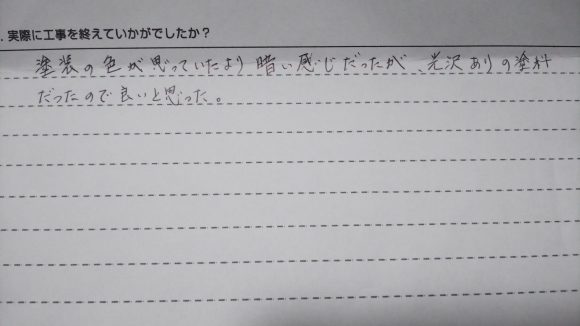 . 実際に工事を終えていかがでしたか？
塗装の色が思っていたより暗い感じだったが、光沢ありの塗料
だったので良いと思った。